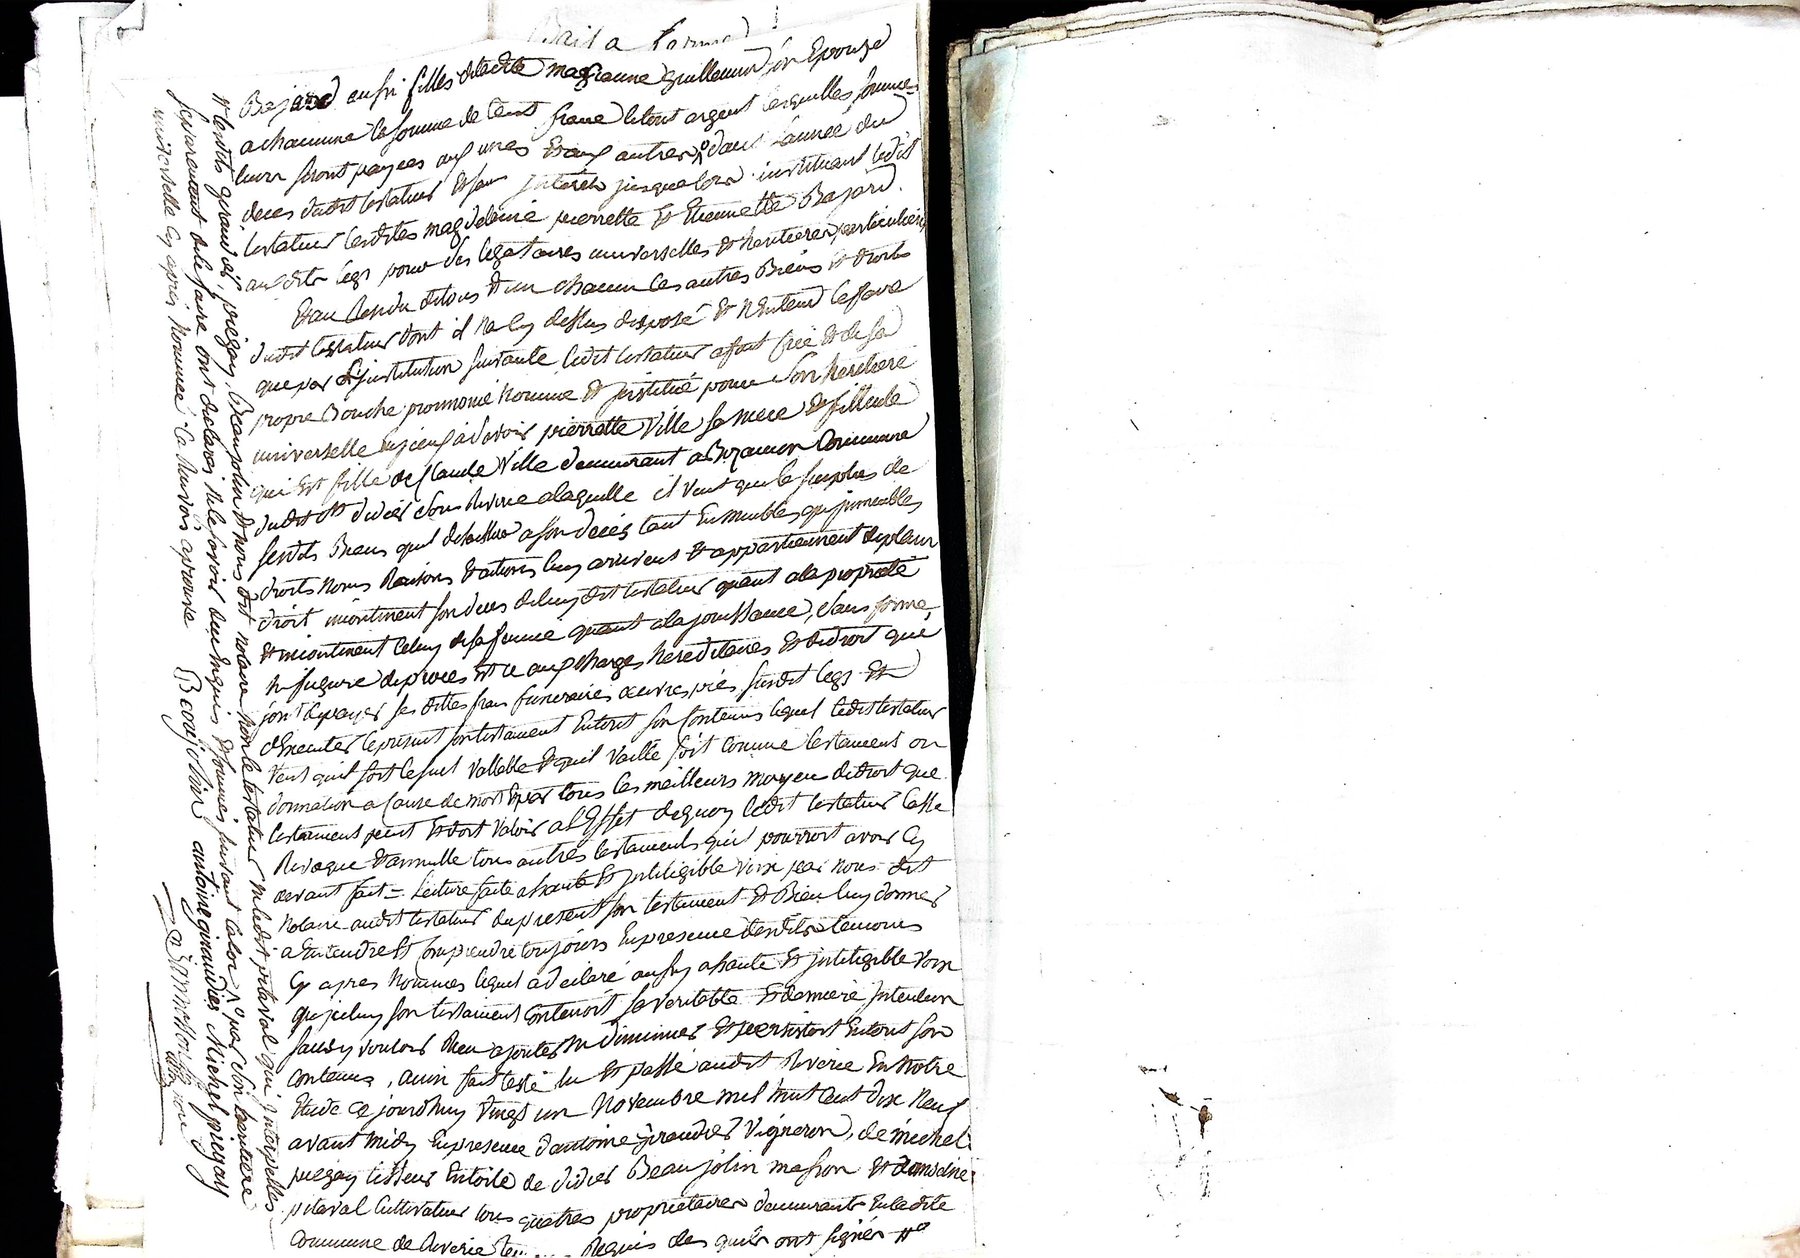 Bail a ferme
Bajard aussi filles de ladite magdeleine guillermin son Epouze
a chacune la somme de Cent franc le tout argent lesquelles sommes
leur seront payées aux unes Et aux autres dans l'année du
deces dudit testateur Et sans Intérêts jusqualors instituant ledit
testateur lesdites magdeleine pierrette Et Etiennette Bajard
auxdits legs pour ses légataires universelles Et heritieres particulieres
Et au Residu de tous Et un chacun ses autres Biens Et droits
dudit testateur dont il na cy dessus disposé Et N'Entend le faire
que par L'institution suivante ledit testateur a fait créé Et de sa
propre Bouche prononcé Nommé Et Institué pour Son heritiere
universelle
a savoir pierrette Ville sa niece Et filleule
qui Est fille de Claude Ville demeurant a Bozancon Commune
dudit St didier Sous Riverie a laquelle il veut que le surplus de
sesdits Biens quil delaissera a son décés tant En meubles qu'jmmeubles
droits Noms Raisons Et actions luy arrivent Et appartiennent de plein
droit incontinent son deces de luy dit testateur quant a la propriété
Et incontinent Celuy de sa femme quant a la jouissance, Sans forme,
Ni figure de procès Et ce aux charges hereditaires Et de droit que
sont de payer ses dittes frais funeraires œuvres pies susdit legs Et
d'Executer le présent son testament En tout son Contenu lequel ledit testateur
Veut quil soit le seul Vallable Et quil Vaille soit Comme testament ou
donnation a Cause de mort Et par tous les meilleurs moyens de droit que
testament peut Et doit Valoir a l'Effet de quoy ledit testateur Casse
Revoque Et annulle tous autres testaments qu'il pourroit avoir Cy
devant fait = Lecture faite a haute Et Intiligible voix par nous dit
Notaire audit testateur du present son testament Et Bien luy donner
a Entendre Et Comprendre toujours En presence desdits temoins
Cy apres Nommés lequel a declaré aussy a haute Et Intiligible voix
qu'jceluy son testament Contenoit sa veritable Et derniere Intention
sans y vouloir Rien ajouter Ni diminuer Et persistant En tout son
contenu, ainsi fait testé lu Et passé audit Riverie En Notre
Etude Ce jourdhuy Vingt un Novembre mil huit Cent dix Neuf
avant midy En presence d'antoine giraudier Vigneron, de michel
piegay tisseur En toile de didier Beaujolin masson Et d'antoine
pitaval Cultivateur tous quatres proprietaires demeurants En ladite
Commune de Riverie Requis des quels ont signés
Et lesdits giraudier, piegay, Beaujolin Et nous dit notaire non le testateur Ni ledit pitaval qui Interpellés
separement de le faire ont declarés Ne le savoir
par son heritiere
universelle Cy apres Nommée Ce Renvoi aprouvé
Beaujolin antoine giraudier Michel piegay